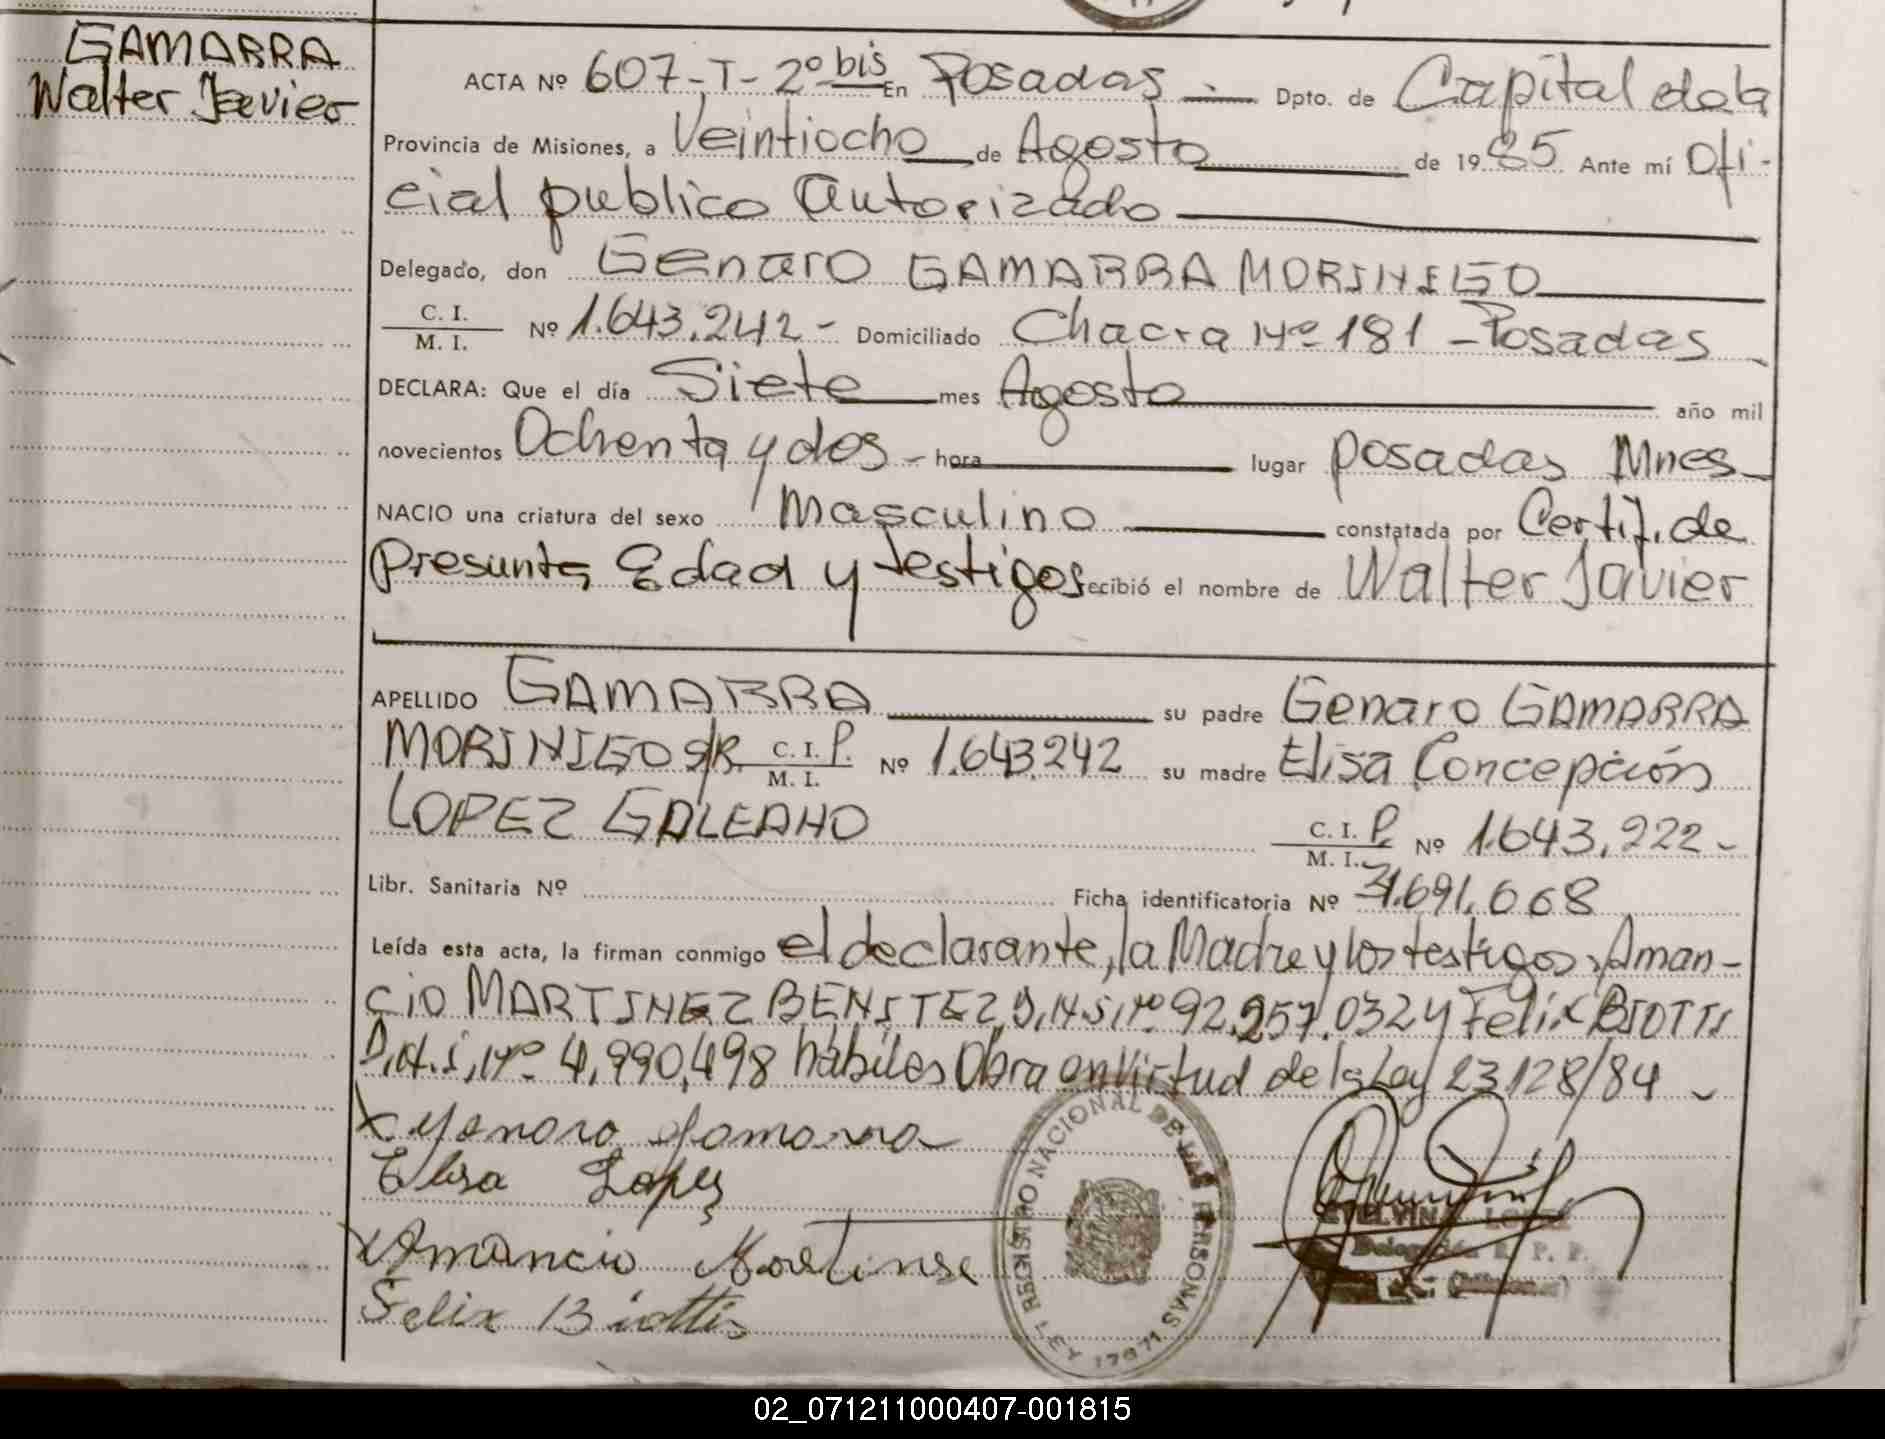 GAMARRA
Walter Javier
ACTA Nº 607-T-2º bis En Posadas Dpto. de Capital de la
Provincia de Misiones, a Veintiocho de Agosto de 1985 Ante mí Ofi-
cial publico Autorizado
Delegado, don Genaro GAMARRA MORINIGO
C. I.
M. I. Nº 1.643.242- Domiciliado Chacra Nº 181 - Posadas
DECLARA: Que el día Siete mes Agosto año mil
novecientos Ochenta y dos - hora lugar posadas Mnes
NACIO una criatura del sexo Masculino constatada por Certif. de
Presunta Edad y testigos recibió el nombre de Walter Javier
APELLIDO GAMARRA su padre Genaro GAMARRA
MORINIGO S/R. C. I. P.
M. I. Nº 1.643.242 su madre Elisa Concepción
LOPEZ GALEANO C. I. P.
M. I. Nº 1.643.222-
Libr. Sanitaria Nº Ficha identificatoria Nº 31.691.668
Leída esta acta, la firman conmigo el declarante, la Madre y los testigos, Aman-
cio MARTINEZ BENITEZ, D.N.I, Nº 92.257.032 y Felix BIOTTI
D.N.I, Nº 4,990,498 hábiles Obra en Virtud de la Ley 23.128/84 -
x Genaro Gamarra
Elisa Lopez
x Amancio Martinse
Felix Biottis
REGISTRO NACIONAL DE LAS PERSONAS
LEY 17671
LOPEZ
Delegación R. P. P.
02_071211000407-001815